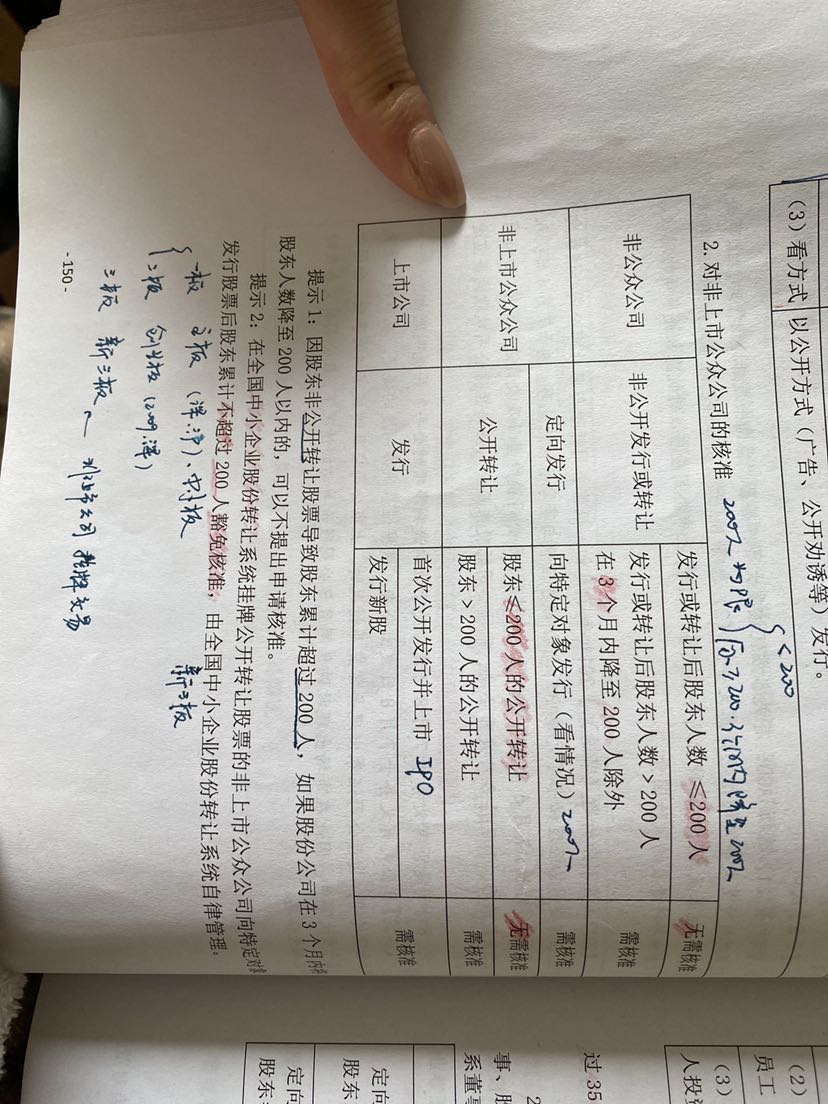 （3）看方式 以公开方式（广告、公开劝诱等）发行。
2. 对非上市公众公司的核准 200人
<200
非公众公司 非公开发行或转让 发行或转让后股东人数≤200人 无需核准
发行或转让后股东人数＞200人 需核准
在3个月内降至200人除外
非上市公众公司 定向发行 向特定对象发行（看情况） 200人 需核准
公开转让 股东≤200人的公开转让 无需核准
股东＞200人的公开转让 需核准
上市公司 发行 首次公开发行并上市 IPO 需核准
发行新股
提示1：因股东非公开转让股票导致股东累计超过200人，如果股份公司在3个月内
股东人数降至200人以内的，可以不提出申请核准。
提示2：在全国中小企业股份转让系统挂牌公开转让股票的非上市公众公司向特定对象
发行股票后股东累计不超过200人豁免核准，由全国中小企业股份转让系统自律管理。
新三板
一板 主板（深.沪）、中小板
二板 创业板（2009.深）
三板 新三板 非上市公司 挂牌交易
- 150 -
（2）
员工
（3）
人投资
过35
2
事、股
系董事
定向
股东
定向
股东